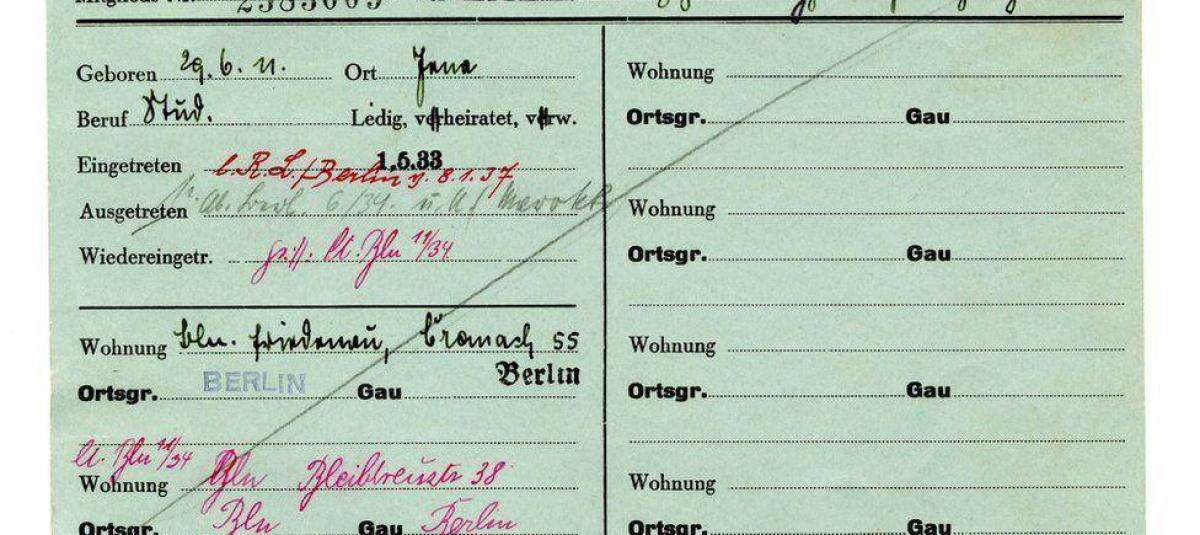 Geboren 29. 6. 11. Ort Jena
Beruf Stud. Ledig, verheiratet, verw.
Eingetreten 1.5.33
Berlin v. 8.1.37
Ausgetreten 6/34. u.
Wiedereingetr. lt. Bln 11/34
Wohnung Bln. Friedenau, Cranach 55
Ortsgr. BERLIN Gau Berlin
lt. Bln 11/34
Wohnung Bln Bleibtreustr 38
Ortsgr. Bln Gau Berlin
Wohnung
Ortsgr. Gau
Wohnung
Ortsgr. Gau
Wohnung
Ortsgr. Gau
Wohnung
Ortsgr. Gau